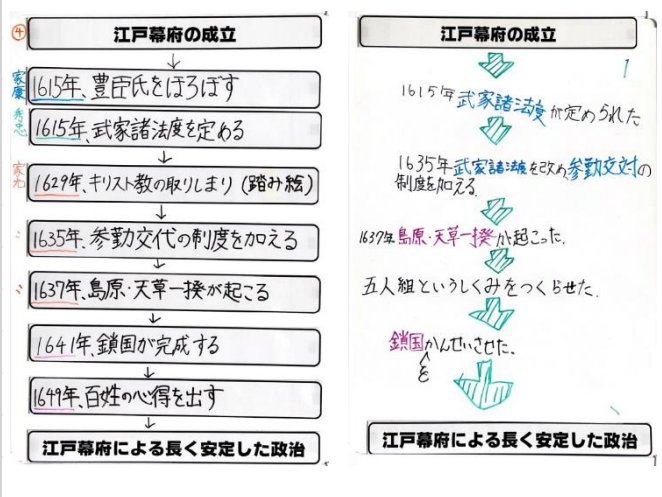 ④
江戸幕府の成立
家康
1615年、豊臣氏をほろぼす
秀忠
1615年、武家諸法度を定める
家光
1629年、キリスト教の取りしまり(踏み絵)
〃
1635年、参勤交代の制度を加える
〃
1637年、島原・天草一揆が起こる
1641年、鎖国が完成する
1649年、百姓の心得を出す
江戸幕府による長く安定した政治
江戸幕府の成立
1
1615年武家諸法度が定められた
1635年武家諸法度を改め、参勤交対の
制度を加える
1637年島原・天草一揆が起こった.
五人組というしくみをつくらせた.
鎖国かんせいさせた.
を
江戸幕府による長く安定した政治